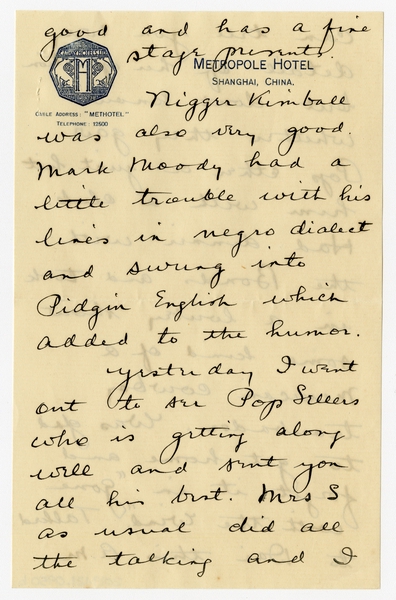 good and has a fine
stage presents.
METROPOLE HOTEL
SHANGHAI, CHINA.
CABLE ADDRESS: "METHOTEL"
TELEPHONE: 12500
Nigger Kimball
was also very good.
Mark Moody had a
little trouble with his
lines in negro dialect
and swung into
Pidgin English which
added to the humor.
yesterday I went
out to see Pop Sellers
who is getting along
well and sent you
all his best. Mrs S
as usual did all
the talking and I